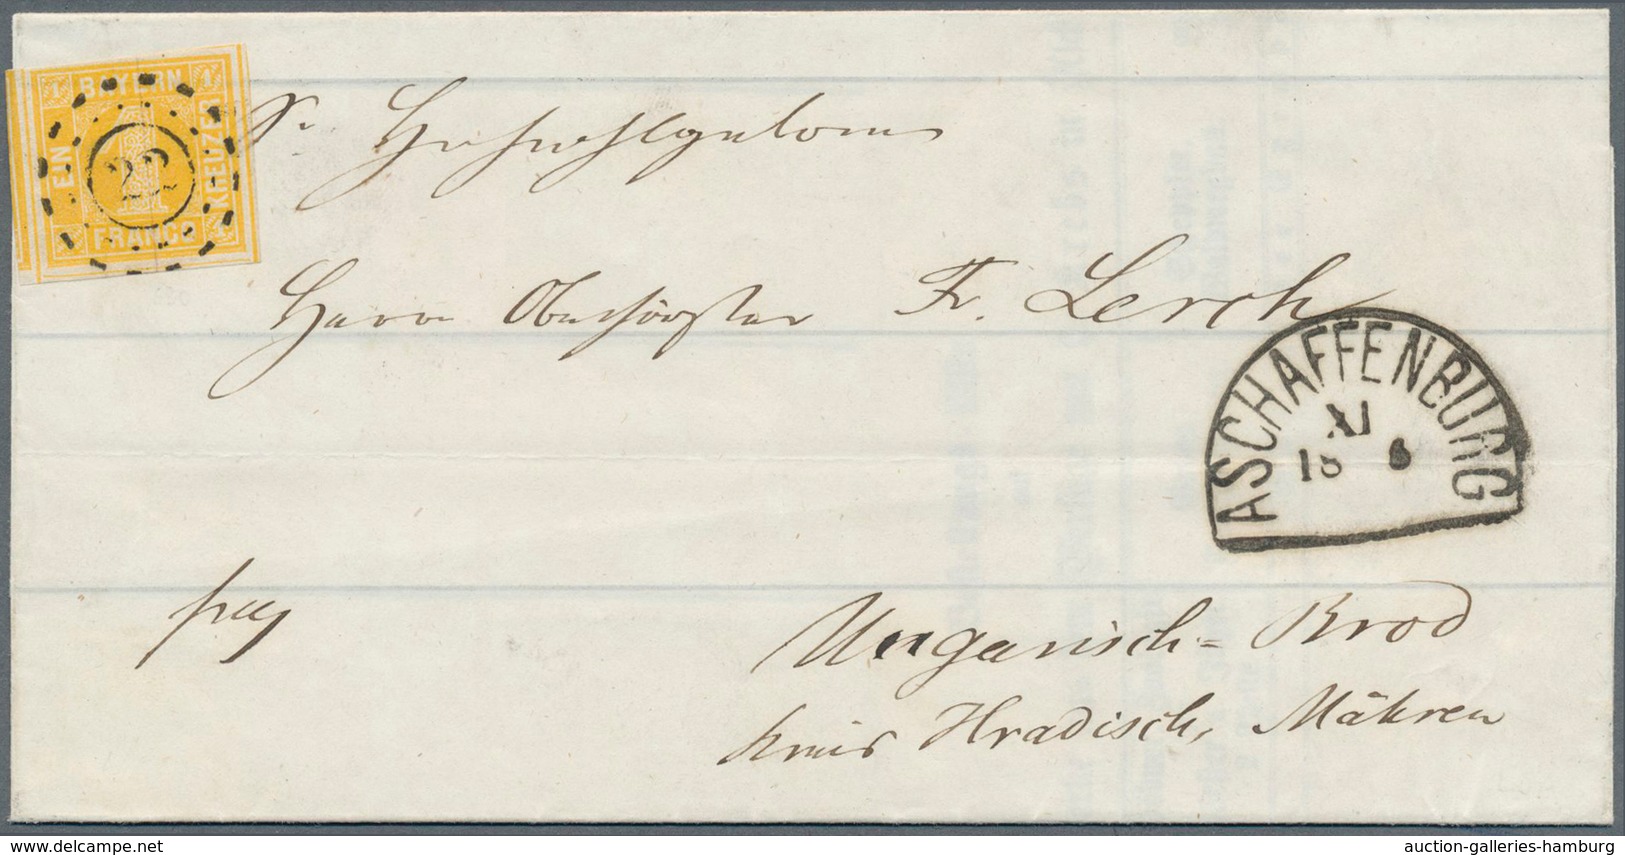 1 BAYERN 1
EIN
1
KREUZER
FRANCO
22
Sr. Hochwohlgeboren
Herrn Oberförster Fr. Lerch
ASCHAFFENBURG
XI
18 6
frey
Ungarisch-Brod
Kreis Hradisch, Mähren
delcampe.net
auction-galleries-hamburg